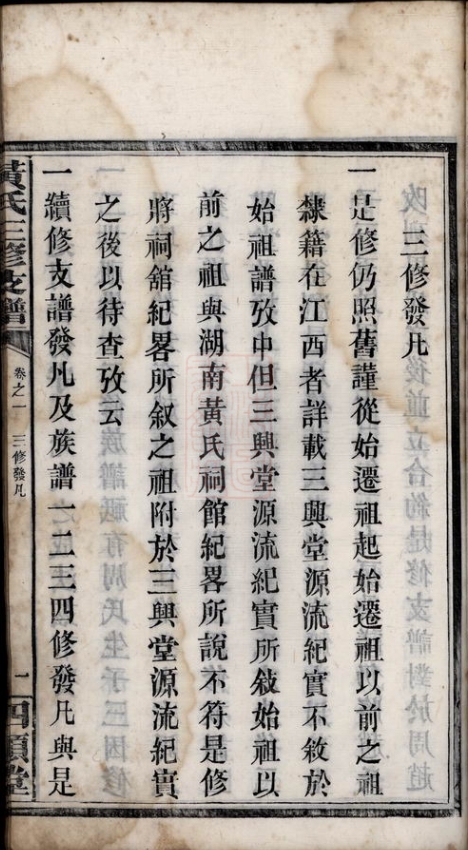 三修發凡
一是修仍照舊謹從始遷祖起始遷祖以前之祖
隸籍在江西者詳載三興堂源流紀實不敘於
始祖譜攷中但三興堂源流紀實所敍始祖以
前之祖與湖南黃氏祠館紀畧所說不符是修
將祠舘紀畧所叙之祖附於三興堂源流紀實
之後以待查攷云
一續修支譜發凡及族譜一二三四修發凡與是
黃氏三修支譜
卷之一
三修發凡
一